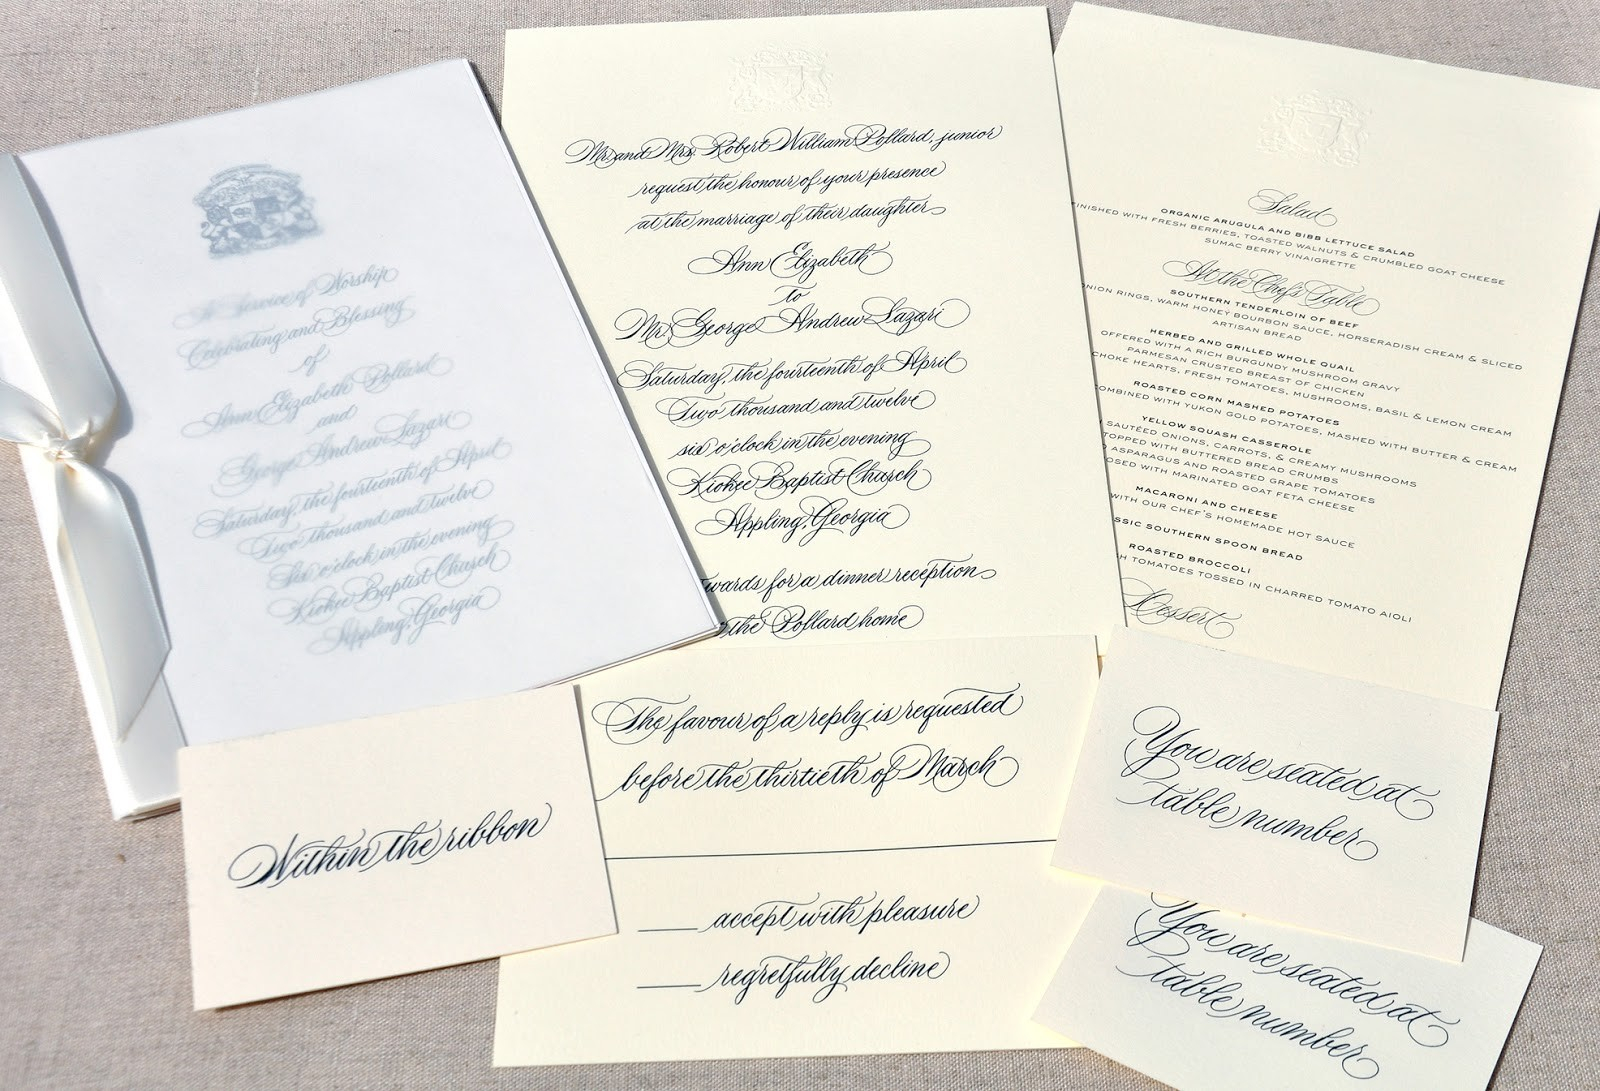 A Service of Worship
Celebrating and Blessing
of
Ann Elizabeth Pollard
and
George Andrew Lazari
Saturday, the fourteenth of April
Two thousand and twelve
Six o'clock in the evening
Kiokee Baptist Church
Appling, Georgia
Mr. and Mrs. Robert William Pollard, junior
request the honour of your presence
at the marriage of their daughter
Ann Elizabeth
to
Mr. George Andrew Lazari
Saturday, the fourteenth of April
Two thousand and twelve
six o'clock in the evening
Kiokee Baptist Church
Appling, Georgia
wards for a dinner reception
the Pollard home
Salad
ORGANIC ARUGULA AND BIBB LETTUCE SALAD
FINISHED WITH FRESH BERRIES, TOASTED WALNUTS & CRUMBLED GOAT CHEESE
SUMAC BERRY VINAIGRETTE
At the Chef's Table
SOUTHERN TENDERLOIN OF BEEF
ONION RINGS, WARM HONEY BOURBON SAUCE, HORSERADISH CREAM & SLICED
ARTISAN BREAD
HERBED AND GRILLED WHOLE QUAIL
OFFERED WITH A RICH BURGUNDY MUSHROOM GRAVY
PARMESAN CRUSTED BREAST OF CHICKEN
CHOKE HEARTS, FRESH TOMATOES, MUSHROOMS, BASIL & LEMON CREAM
ROASTED CORN MASHED POTATOES
COMBINED WITH YUKON GOLD POTATOES, MASHED WITH BUTTER & CREAM
YELLOW SQUASH CASSEROLE
SAUTÉED ONIONS, CARROTS, & CREAMY MUSHROOMS
TOPPED WITH BUTTERED BREAD CRUMBS
ASPARAGUS AND ROASTED GRAPE TOMATOES
OSED WITH MARINATED GOAT FETA CHEESE
MACARONI AND CHEESE
WITH OUR CHEF'S HOMEMADE HOT SAUCE
SSIC SOUTHERN SPOON BREAD
ROASTED BROCCOLI
H TOMATOES TOSSED IN CHARRED TOMATO AIOLI
Dessert
The favour of a reply is requested
before the thirtieth of March
accept with pleasure
regretfully decline
Within the ribbon
You are seated at
table number
You are seated at
table number